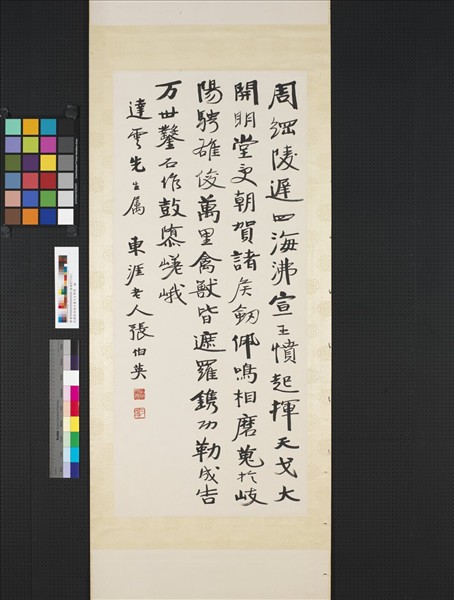 周綱陵遲四海沸宣王憤起揮天戈大
開明堂受朝賀諸侯劒佩鳴相磨蒐於岐
陽騁雄俊萬里禽獸皆遮羅鐫功勒成告
万世鑿石作鼓隳嵯峨
達雲先生属 東涯老人張伯英